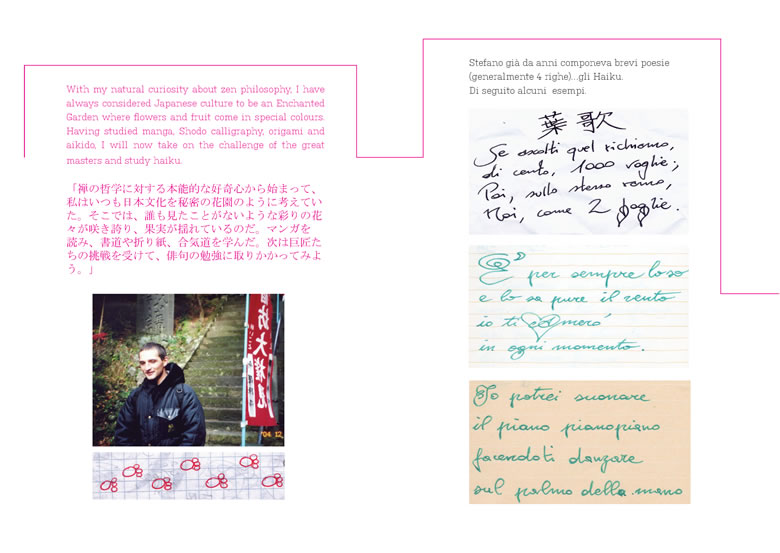 With my natural curiosity about zen philosophy, I have
always considered Japanese culture to be an Enchanted
Garden where flowers and fruit come in special colours.
Having studied manga, Shodo calligraphy, origami and
aikido, I will now take on the challenge of the great
masters and study haiku.
「禅の哲学に対する本能的な好奇心から始まって、
私はいつも日本文化を秘密の花園のように考えてい
た。そこでは、誰も見たことがないような彩りの花
々が咲き誇り、果実が揺れているのだ。マンガを
読み、書道や折り紙、合気道を学んだ。次は巨匠た
ちの挑戦を受けて、俳句の勉強に取りかかってみよ
う。」
坊大権現
'04 12
Stefano già da anni componeva brevi poesie
(generalmente 4 righe)...gli Haiku.
Di seguito alcuni esempi.
葉歌
Se ascolti quel richiamo,
di cento, 1000 voglie;
Poi, sullo stesso ramo,
Noi, come 2 foglie.
E' per sempre loso
e lo sa pure il vento
io ti amerò
in ogni momento.
Io potrei suonare
il piano pianopiano
facendoti danzare
sul palmo della mano